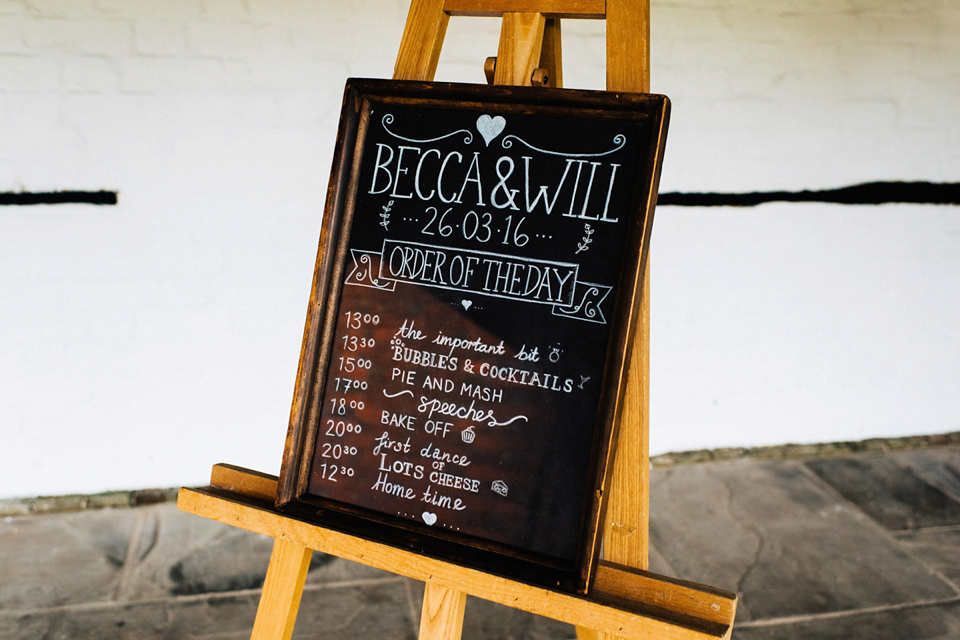 BECCA & WILL
...26.03.16...
ORDER OF THE DAY
13⁰⁰ the important bit
13³⁰ BUBBLES & COCKTAILS
15⁰⁰ PIE AND MASH
17⁰⁰ speeches
18⁰⁰ BAKE OFF
20⁰⁰ first dance
20³⁰ LOTS OF CHEESE
12³⁰ Home time